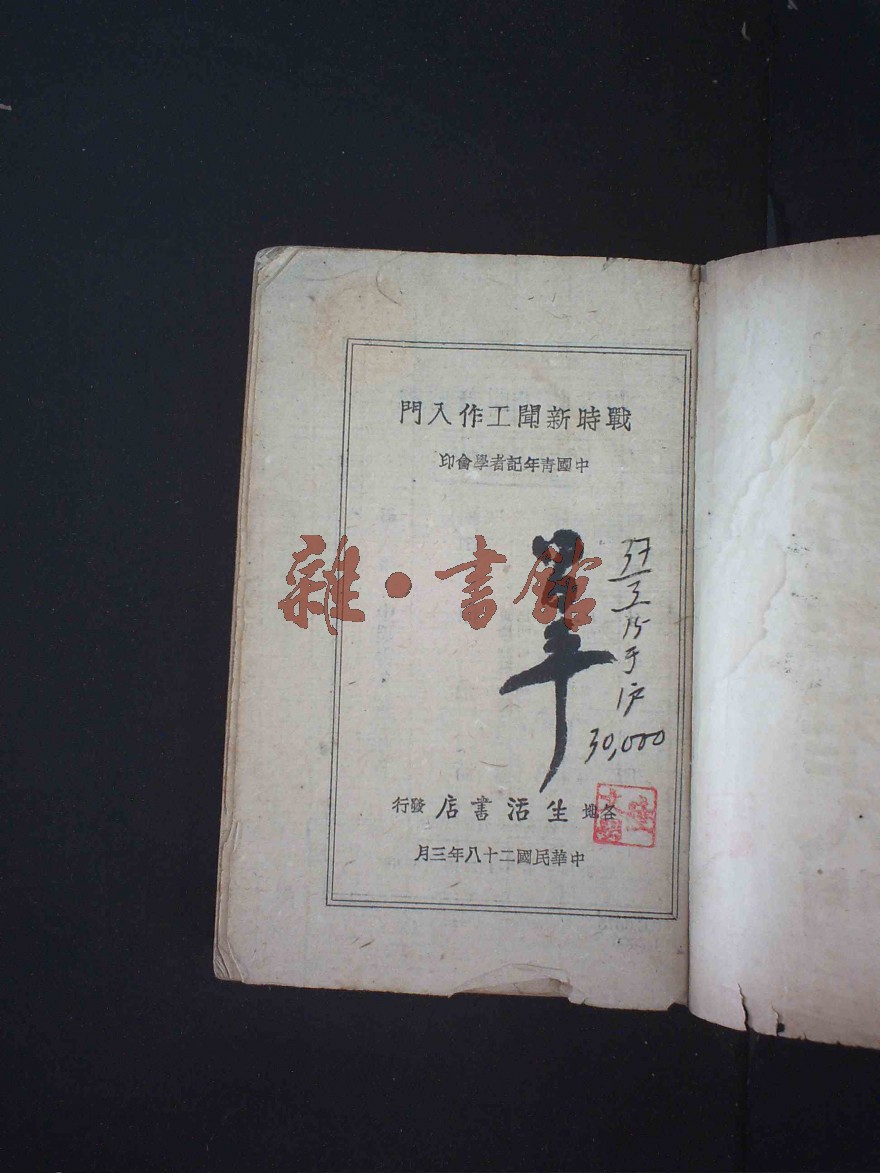 戰時新聞工作入門
中國靑年記者學會印
雜·書館
30,000
各地生活書店發行
中華民國二十八年三月